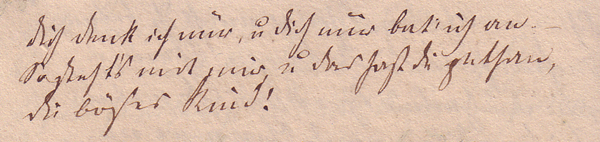 dich denk ich nur, u dich nur bet' ich an —
So steht's mit mir, u das hast du gethan,
du böses Kind!